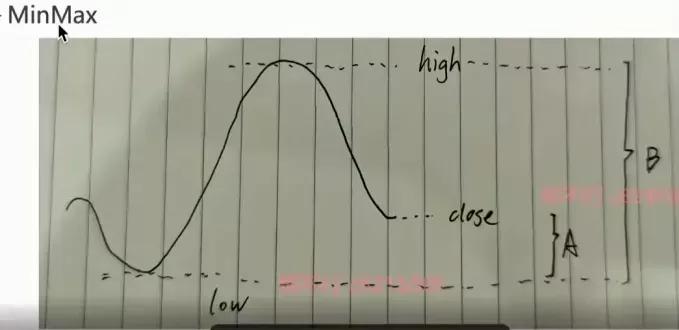 - MinMax
high
B
close
A
low